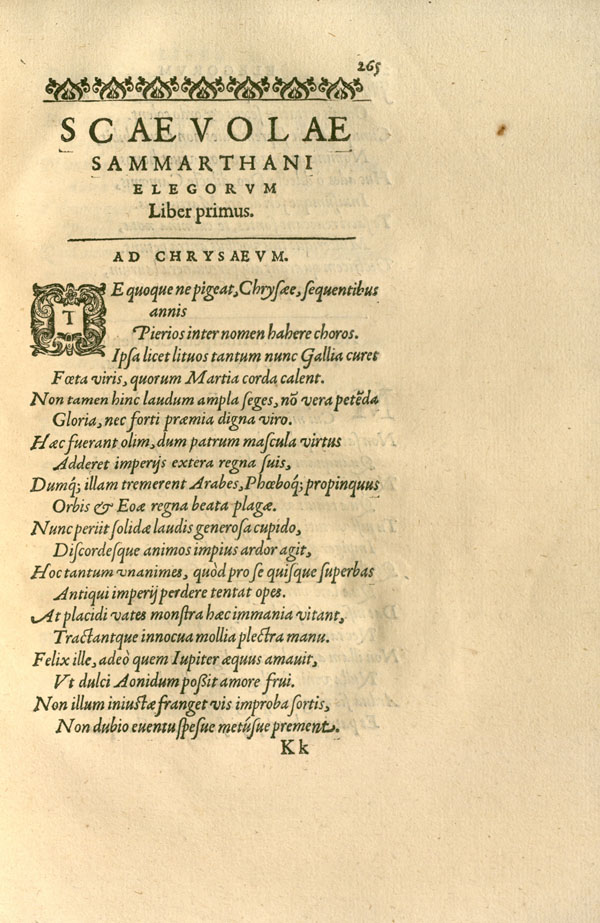 265
SCAEVOLAE
SAMMARTHANI
ELEGORVM
Liber primus.
AD CHRYSAEVM.
TE quoque ne pigeat, Chryſæe, ſequentibus
annis
Pierios inter nomen habere choros.
Ipſa licet lituos tantum nunc Gallia curet
Fœta viris, quorum Martia corda calent.
Non tamen hinc laudum ampla ſeges, nõ vera petẽda
Gloria, nec forti præmia digna viro.
Hæc fuerant olim, dum patrum maſcula virtus
Adderet imperijs extera regna ſuis,
Dumq; illam tremerent Arabes, Phœboq; propinquus
Orbis & Eoæ regna beata plagæ.
Nunc periit ſolidæ laudis generoſa cupido,
Diſcordeſque animos impius ardor agit,
Hoc tantum vnanimes, quòd pro ſe quiſque ſuperbas
Antiqui imperij perdere tentat opes.
At placidi vates monſtra hæc immania vitant,
Tractantque innocua mollia plectra manu.
Felix ille, adeò quem Iupiter æquus amauit,
Vt dulci Aonidum poßit amore frui.
Non illum iniuſtæ franget vis improba ſortis,
Non dubio euentu ſpeſue metúſue prement.
Kk